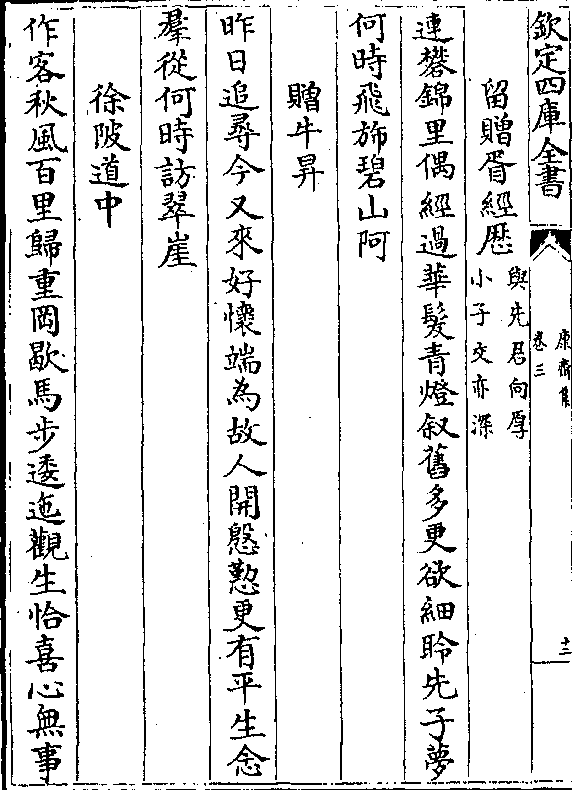 欽定四庫全書
康齋集
卷三
十三
留贈胥經歷
與先君向厚
小子交亦深
連礬錦里偶經過華髮青燈叙舊多更欲細聆先子夢
何時飛斾碧山阿
贈牛昇
昨日追尋今又來好懷端為故人開慇懃更有平生念
羣從何時訪翠崖
徐陂道中
作客秋風百里歸重岡歇馬步逶迤觀生恰喜心無事